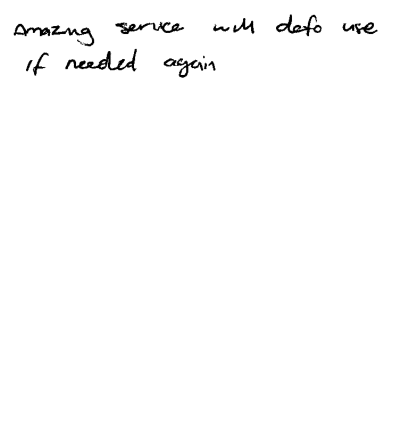 Amazing service will defo use
if needed again